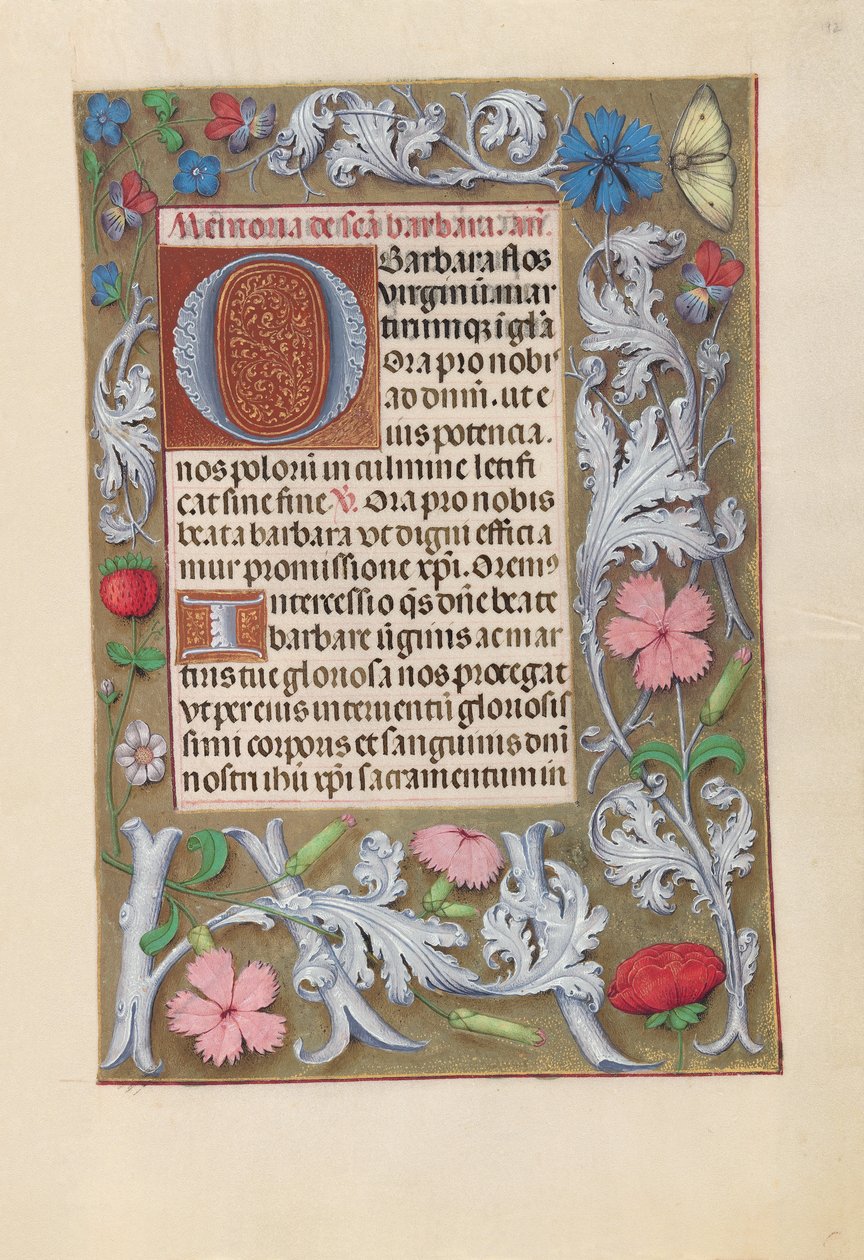 Memoria de scā barbara. an̄.
O Barbara flos
virginū mar
tirumqz ī glā
Ora pro nobis
ad dnm̄. ut e
ius potencia.
nos polorū in culmine letifi
cat sine fine. V. Ora pro nobis
beata barbara vt digni efficia
mur promissione xp̄i. Oremꝰ
Intercessio q̄s dn̄e beate
barbare v̄ginis ac mar
tiris tue gloriosa nos protegat
vt per eius interuentū gloriosis
simi corporis et sanguinis dn̄i
nostri ihū xp̄i sacramentum in